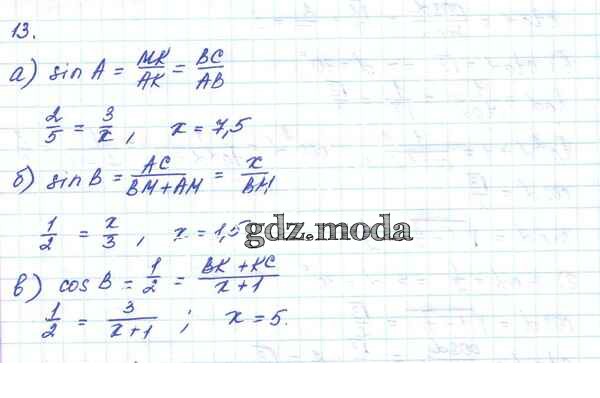 13.
а) sin A = MK/AK = BC/AB
2/5 = 3/x, x = 7,5
б) sin B = AC/(BM+AM) = x/BM
1/2 = x/3, x = 1,5
gdz.moda
в) cos B = 1/2 = (BK+KC)/(x+1)
1/2 = 3/(x+1); x = 5.